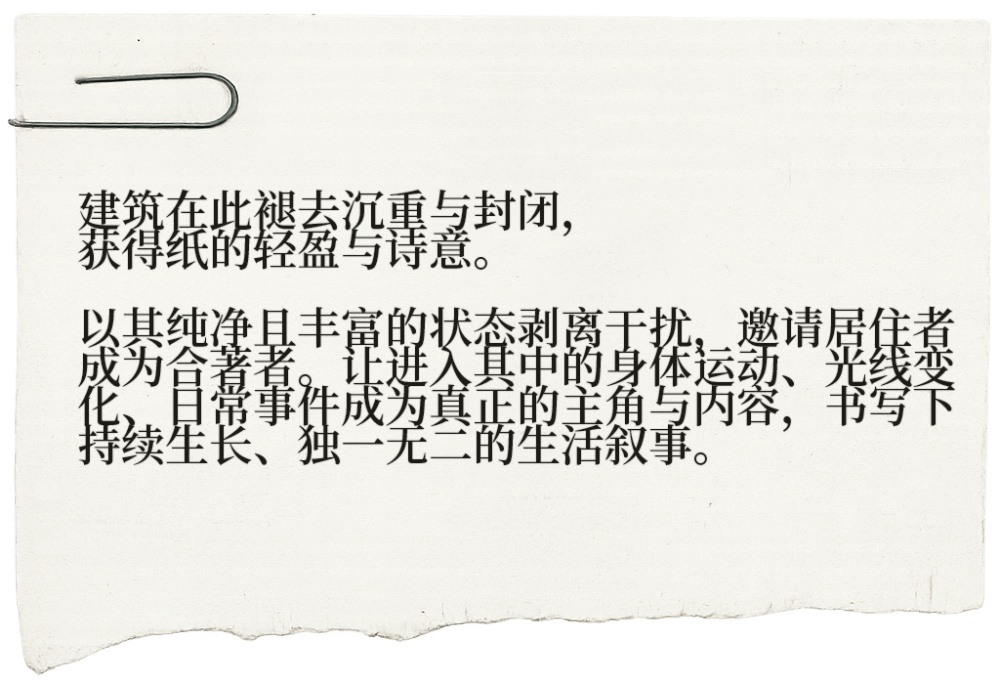 建筑在此褪去沉重与封闭，
获得纸的轻盈与诗意。
以其纯净且丰富的状态剥离干扰，邀请居住者
成为合著者。让进入其中的身体运动、光线变
化、日常事件成为真正的主角与内容，书写下
持续生长、独一无二的生活叙事。